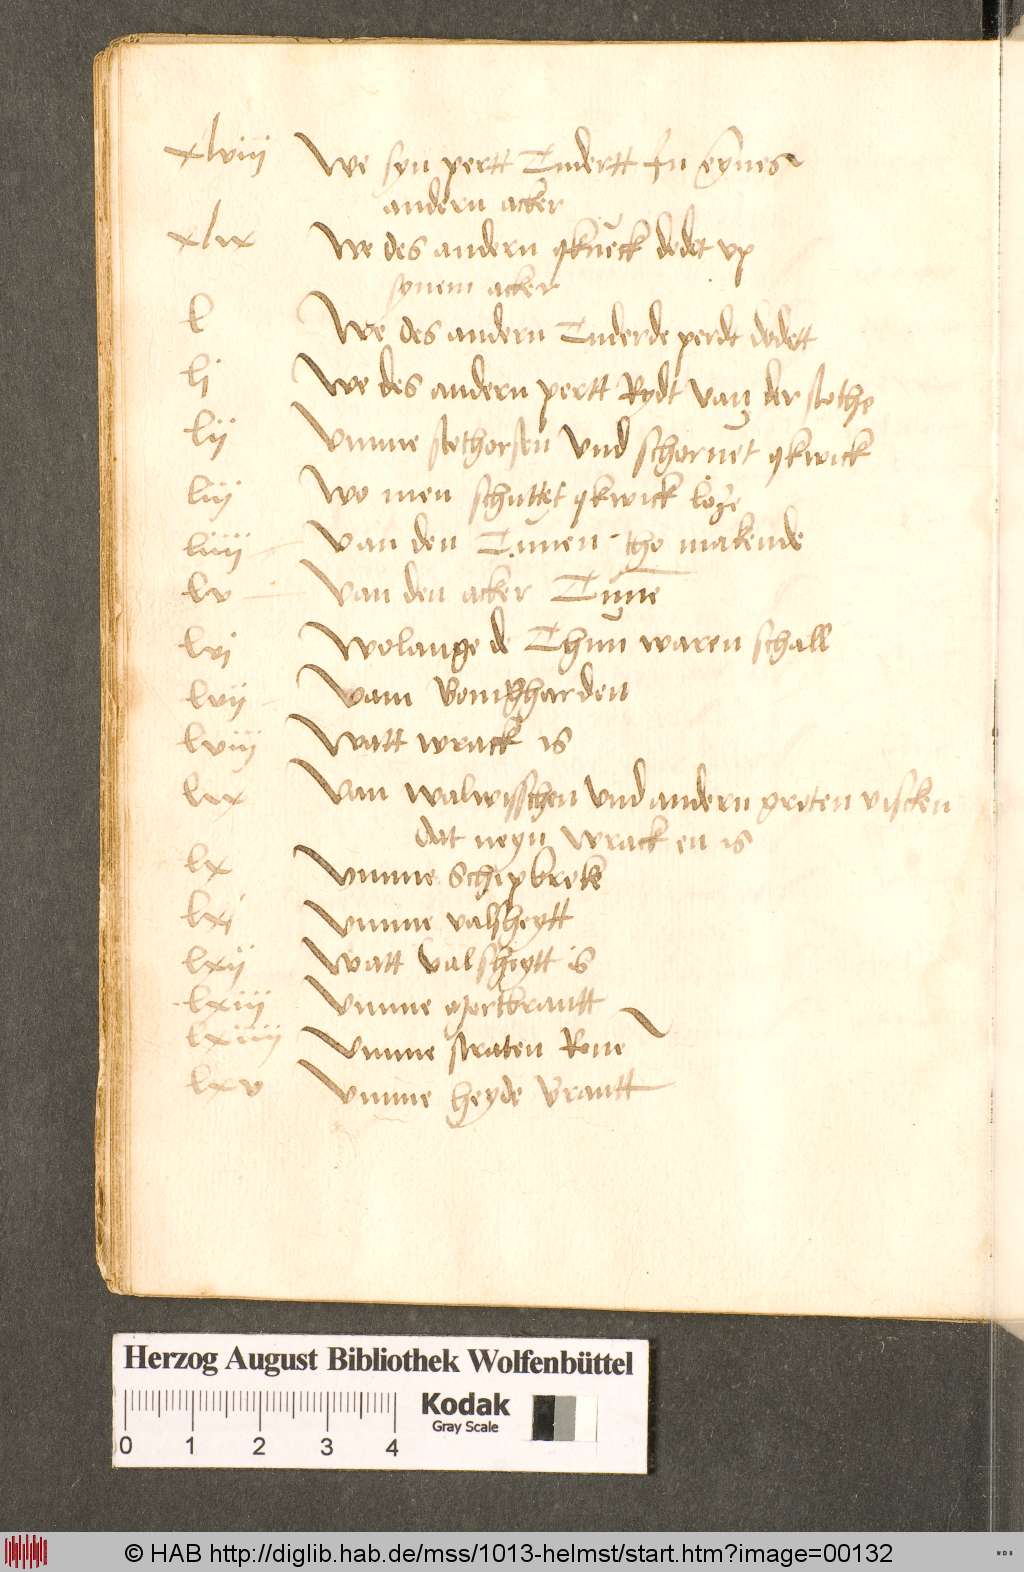 xlviii We syn pertt Tudertt In eynes
andern acker
xlix We des andern qkueck dodet vp
synem acker
l We des andern Tuderde perdt dodett
li We des andern pertt Rydt van der stothe
lii Vmme stothorsen vnd schornet qkwick
liii Wo men schuttet qkwick loze
liiii Van den Tunen tho makende
lv Van den acker Tune
lvi Wolange de Thun waren schall
lvii Vam Bomgharden
lviii Watt wrack is
lix Van walwisschen vnd andern groten viscken
dat neyn wrack en is
lx Vmme Schipbroke
lxi Vmme valsheytt
lxii Watt valscheytt is
lxiii Vmme mortbrantt
lxiiii Vmme straten Rone
lxv Vmme heyde brantt
Herzog August Bibliothek Wolfenbüttel
Kodak
Gray Scale
0 1 2 3 4
© HAB http://diglib.hab.de/mss/1013-helmst/start.htm?image=00132